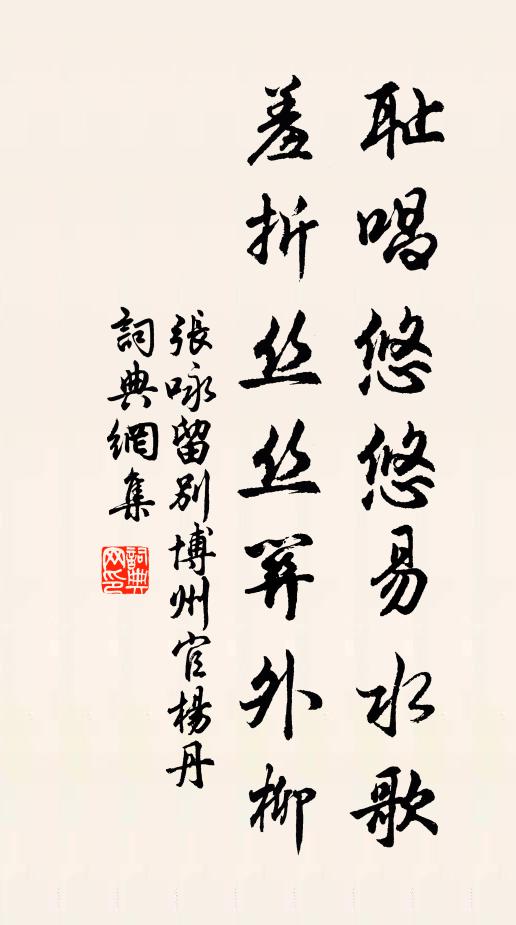 耻唱悠悠易水歌
羞折丝丝關外柳
張咏留別博州官楊丹
詞典網集
詞典
网印